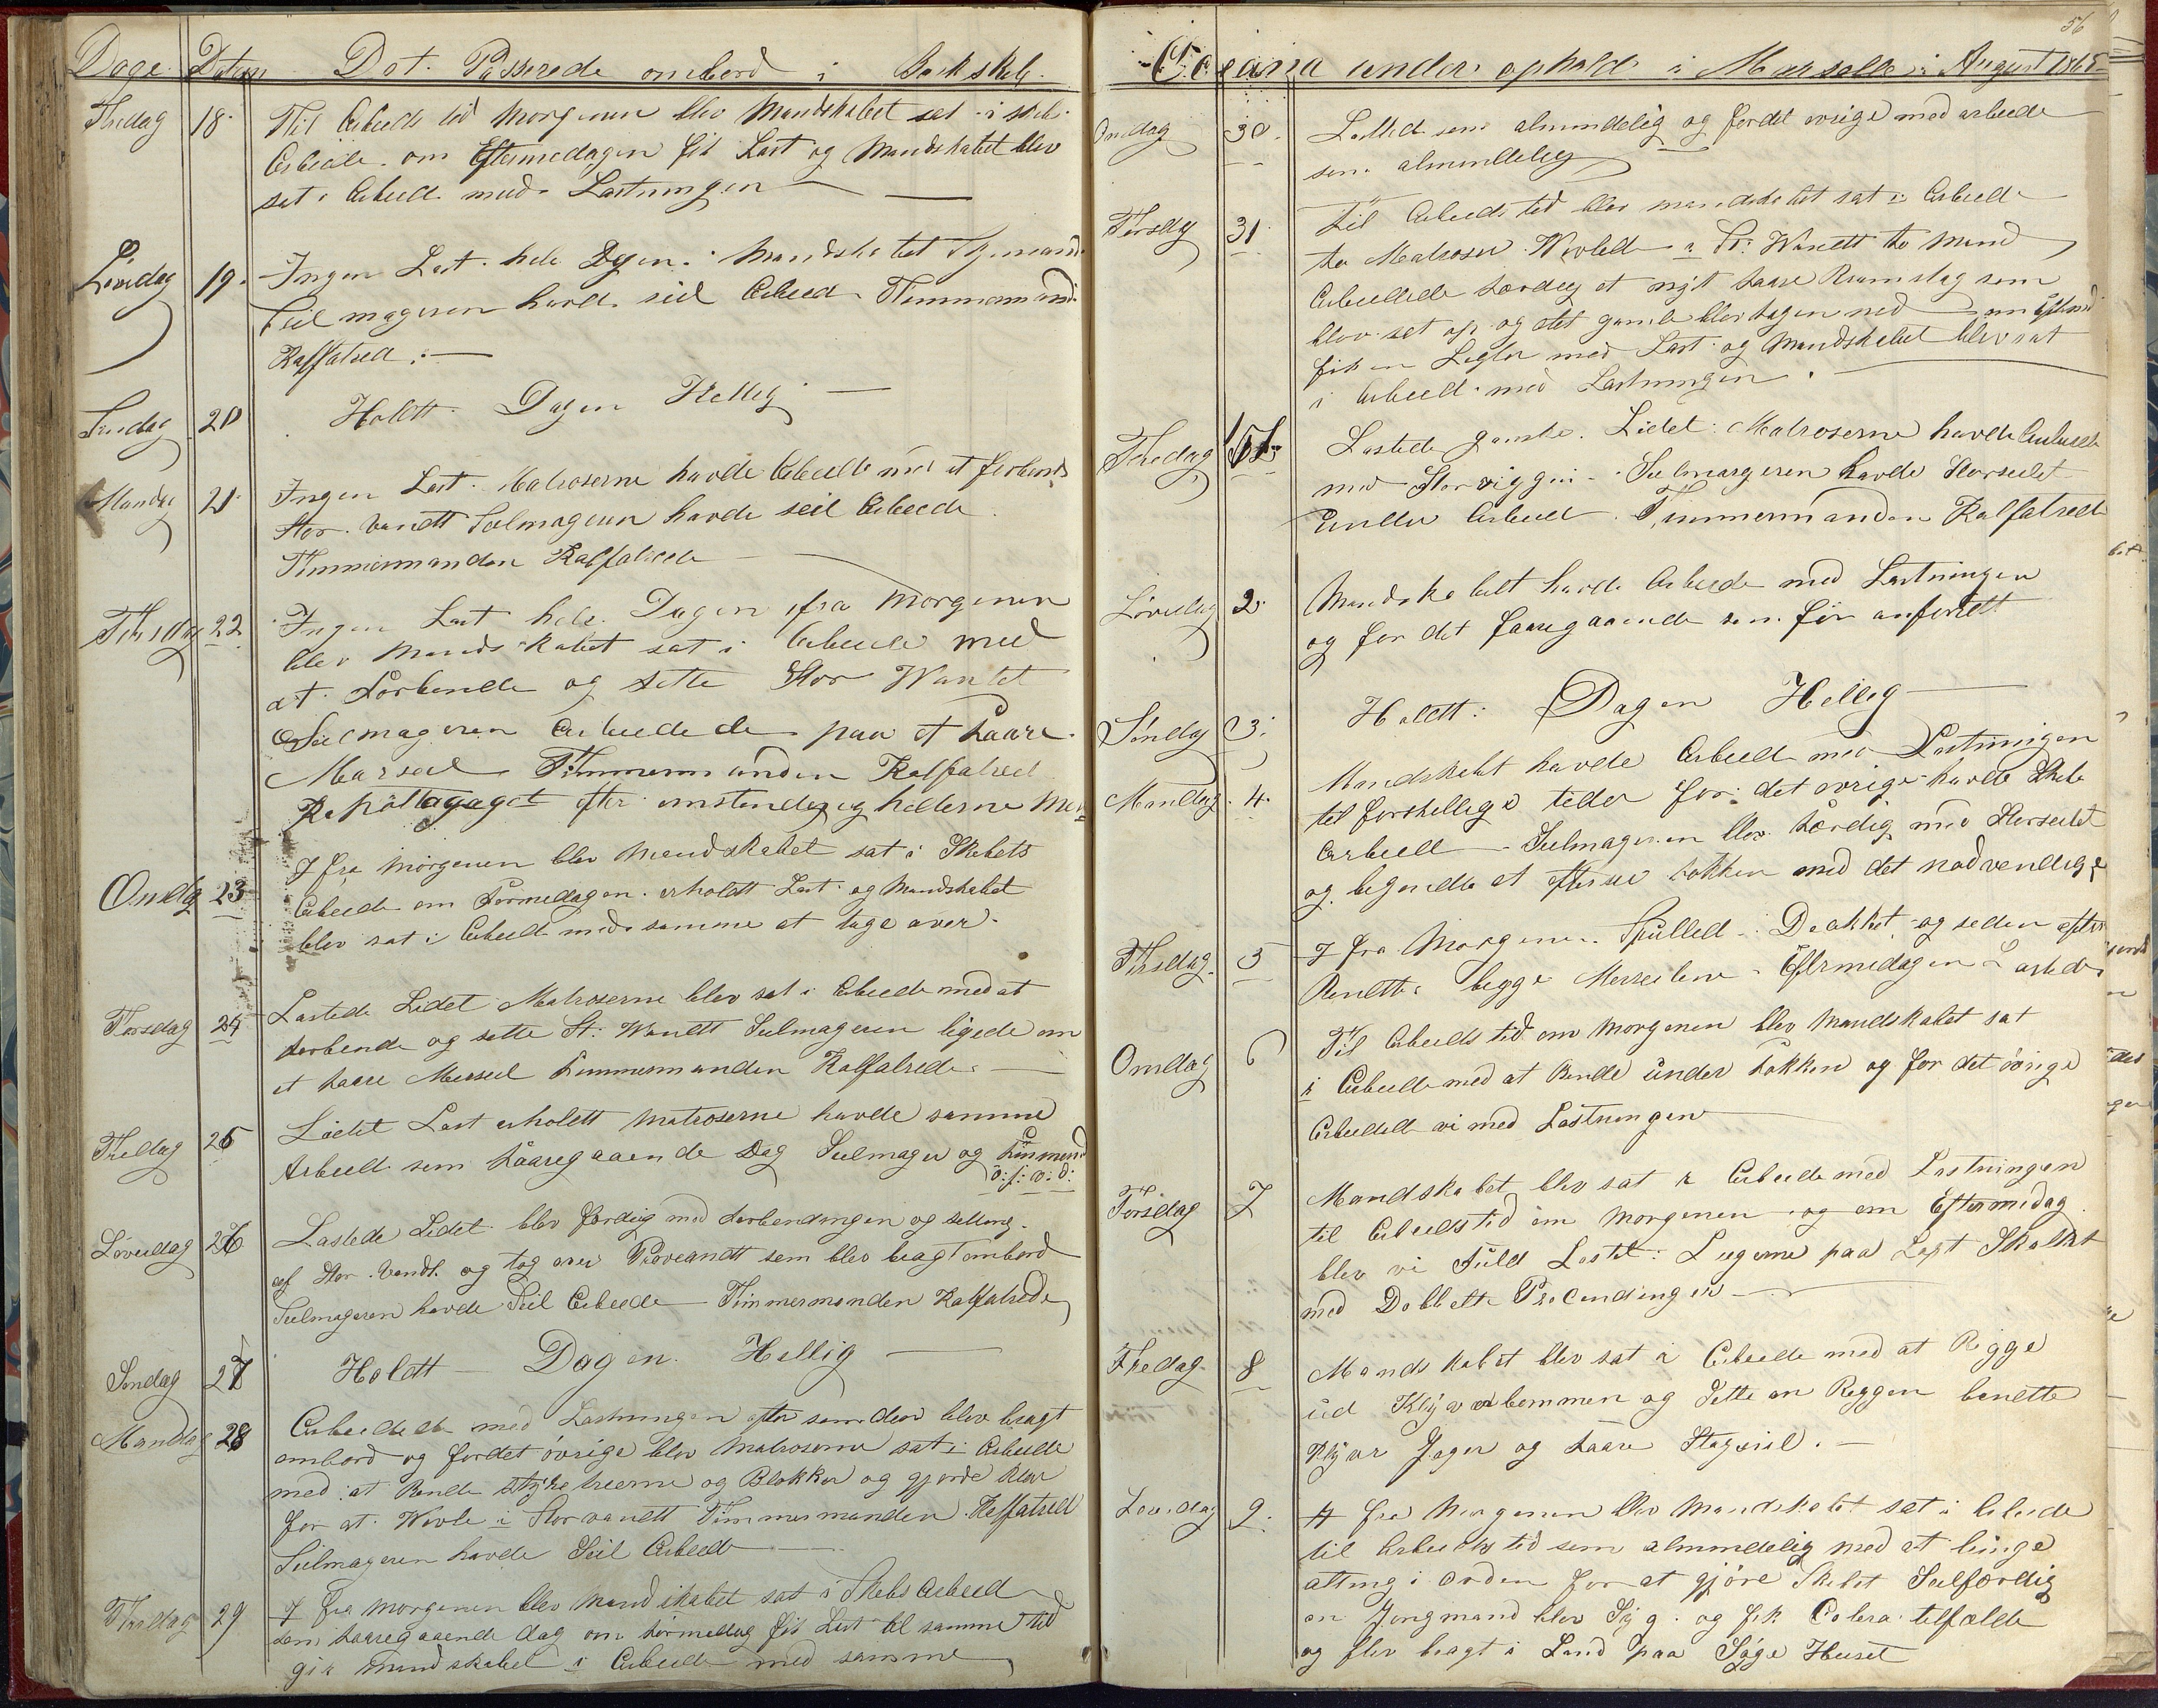 Dage Datum Det Passerede ombord i Barkskib
Fredag 18. Til Arbeids tid Morgenen blev Mandskabet sat i skibs
Arbeide. om Eftermedagen fik Last og Mandskabet blev
sat i Arbeide med Lastningen
Löverdag 19. Ingen Last hele Dagen. Mandskabet
Seilmageren havde seil Arbeid Tømmermand
Kalfatred
Søndag 20 Holdt Dagen Hellig
Mandag 21. Ingen Last. Matroserne havde Arbeide med at forbende
Stor Vandtt Seilmageren havde seil Arbeide
Timmermanden Kalfatrede
Thirsdag 22 Ingen Last hele Dagen ifra Morgenen
blev Mandskabet sat i Arbeide med
at Forbende og sette Stor Wantet
Seilmageren Arbeidede paa et Faare
Marseil Timmermanden Kalfatred
efter omstendighederne
Onsdag 23 I fra Morgenen blev Mandskabet sat i Skibets
Arbeide om Formedagen erholdt Last og Mandskabet
blev sat i Arbeide med samme at tage over
Torsdag 24 Lastede Lidet Matroserne blev sat i Arbeide med at
forbende og sette St: Wandtt Seilmageren ligede om
et Faare Merseil Timmermanden Kalfatrede
Fredag 25 Lidet Last erholdtt Matroserne havde samme
Arbeide som Faaregaaende Dag Seilmager og Timmermd
o: f: v: d:
Löverdag 26 Lastede Lidet blev færdig med Forbendingen og setting
af Stor Vandt og tog over Proveandtt som blev bragt ombord
Seilmageren havde Seil Arbeide Timmermanden Kalfatrede
Søndag 27 Holdtt Dagen Hellig
Mandag 28 Arbeidede med Lastningen efter som den blev bragt
ombord og for det övrige blev Matroserne sat i Arbeide
med at Bende og Blokker og gjorde klar
for at Wevle i Storvandtt Timmermanden Kalfatred
Seilmageren havde Seil Arbeide
Thirsdag 29 I fra Morgenen blev Mandskabet sat i Skibs Arbeid
som Faaregaaende dag om Formedag fik Last til samme tid
gik Mandskabet i Arbeide med samme
56
Oceana under ophold i Marselle i August 1865
Onsdag 30. Lasted som almindelig og for det øvrige med arbeide
som almindelig
Torsdag 31. Til Arbeids tid blev mandskabet sat i Arbeide
to Matroser Wevlede i St: Wandtt to Mand
Arbeidede færdig et nyt Faare Bramstag som
blev sat op og det gamle blev tagen ned om Efterm
fik en Legter med Last og Mandskabet blev sat
i Arbeid med Lastningen
Fredag 1st Lastede ganske Lidet: Matroserne havde Arbeide
med Storriggen Seilmageren havde Storseilet
Under Arbeid Timmermanden Kalfatred
Löverdag 2. Mandskabett havde Arbeide med Lastningen
og for det faaregaaende som før anførtt
Søndag 3. Holdtt: Dagen Hellig
Mandag 4. Mandskabet havde Arbeid med Lastningen
til forskellige tider for det øvrige havde Skibs
Arbeid Seilmageren blev færdig med Storseilet
og begyndte at efterse Fokken med det nødvendige
Thirsdag 5 I fra Morgenen Spulled Deakket og seden efter
Bendtte begge Merseilene Eftermedagen Lastede
Onsdag 6 Til Arbeids tid om Morgenen blev Mandskabet sat
i Arbeide med at Bende under Fokken og for det övrige
Arbeided vi med Lastningen
Torsdag 7 Mandskabet blev sat i Arbeide med Lastningen
til Arbeids tid om Morgenen og om Eftermidag
blev vi Fuld Lastet: Lugerne paa Lagt Skalket
med Dobbelte Presendinger
Fredag 8 Mandskabet blev sat i Arbeide med at Rigge
ud Klyverbommen og Sette an Reggen bendtte
Klyver Jager og Faare Stagseil.
Löverdag 9. I fra Morgenen blev Mandskabet sat i Arbeide
til Arbeids tid som almindelig med at bringe
alting i Orden for at gjöre Skibet Seilfærdig
en Jongmand blev Syg og fik Colera tilfælde
og blev bragt i Land paa Syge Huuset